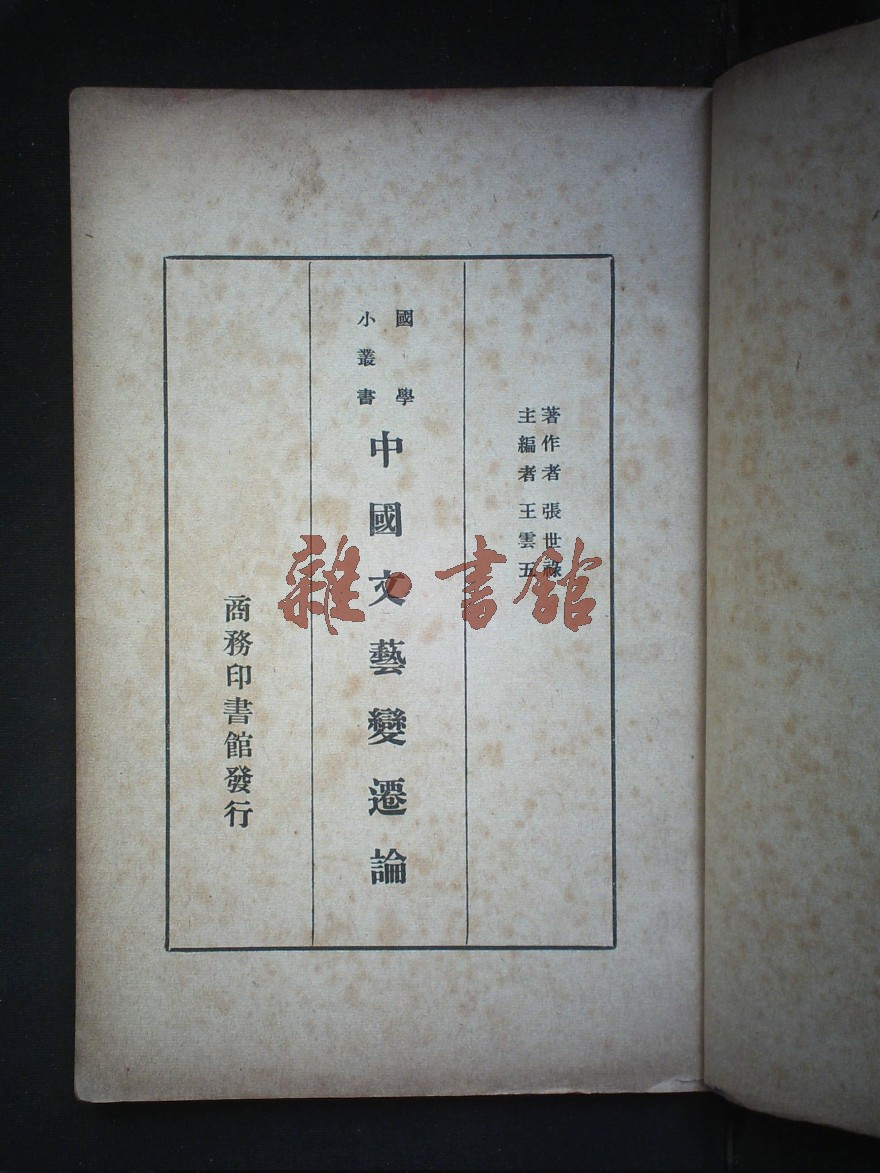 著作者 張世祿
主編者 王雲五
國學
小叢書
中國文藝變遷論
商務印書館發行
雜·書館